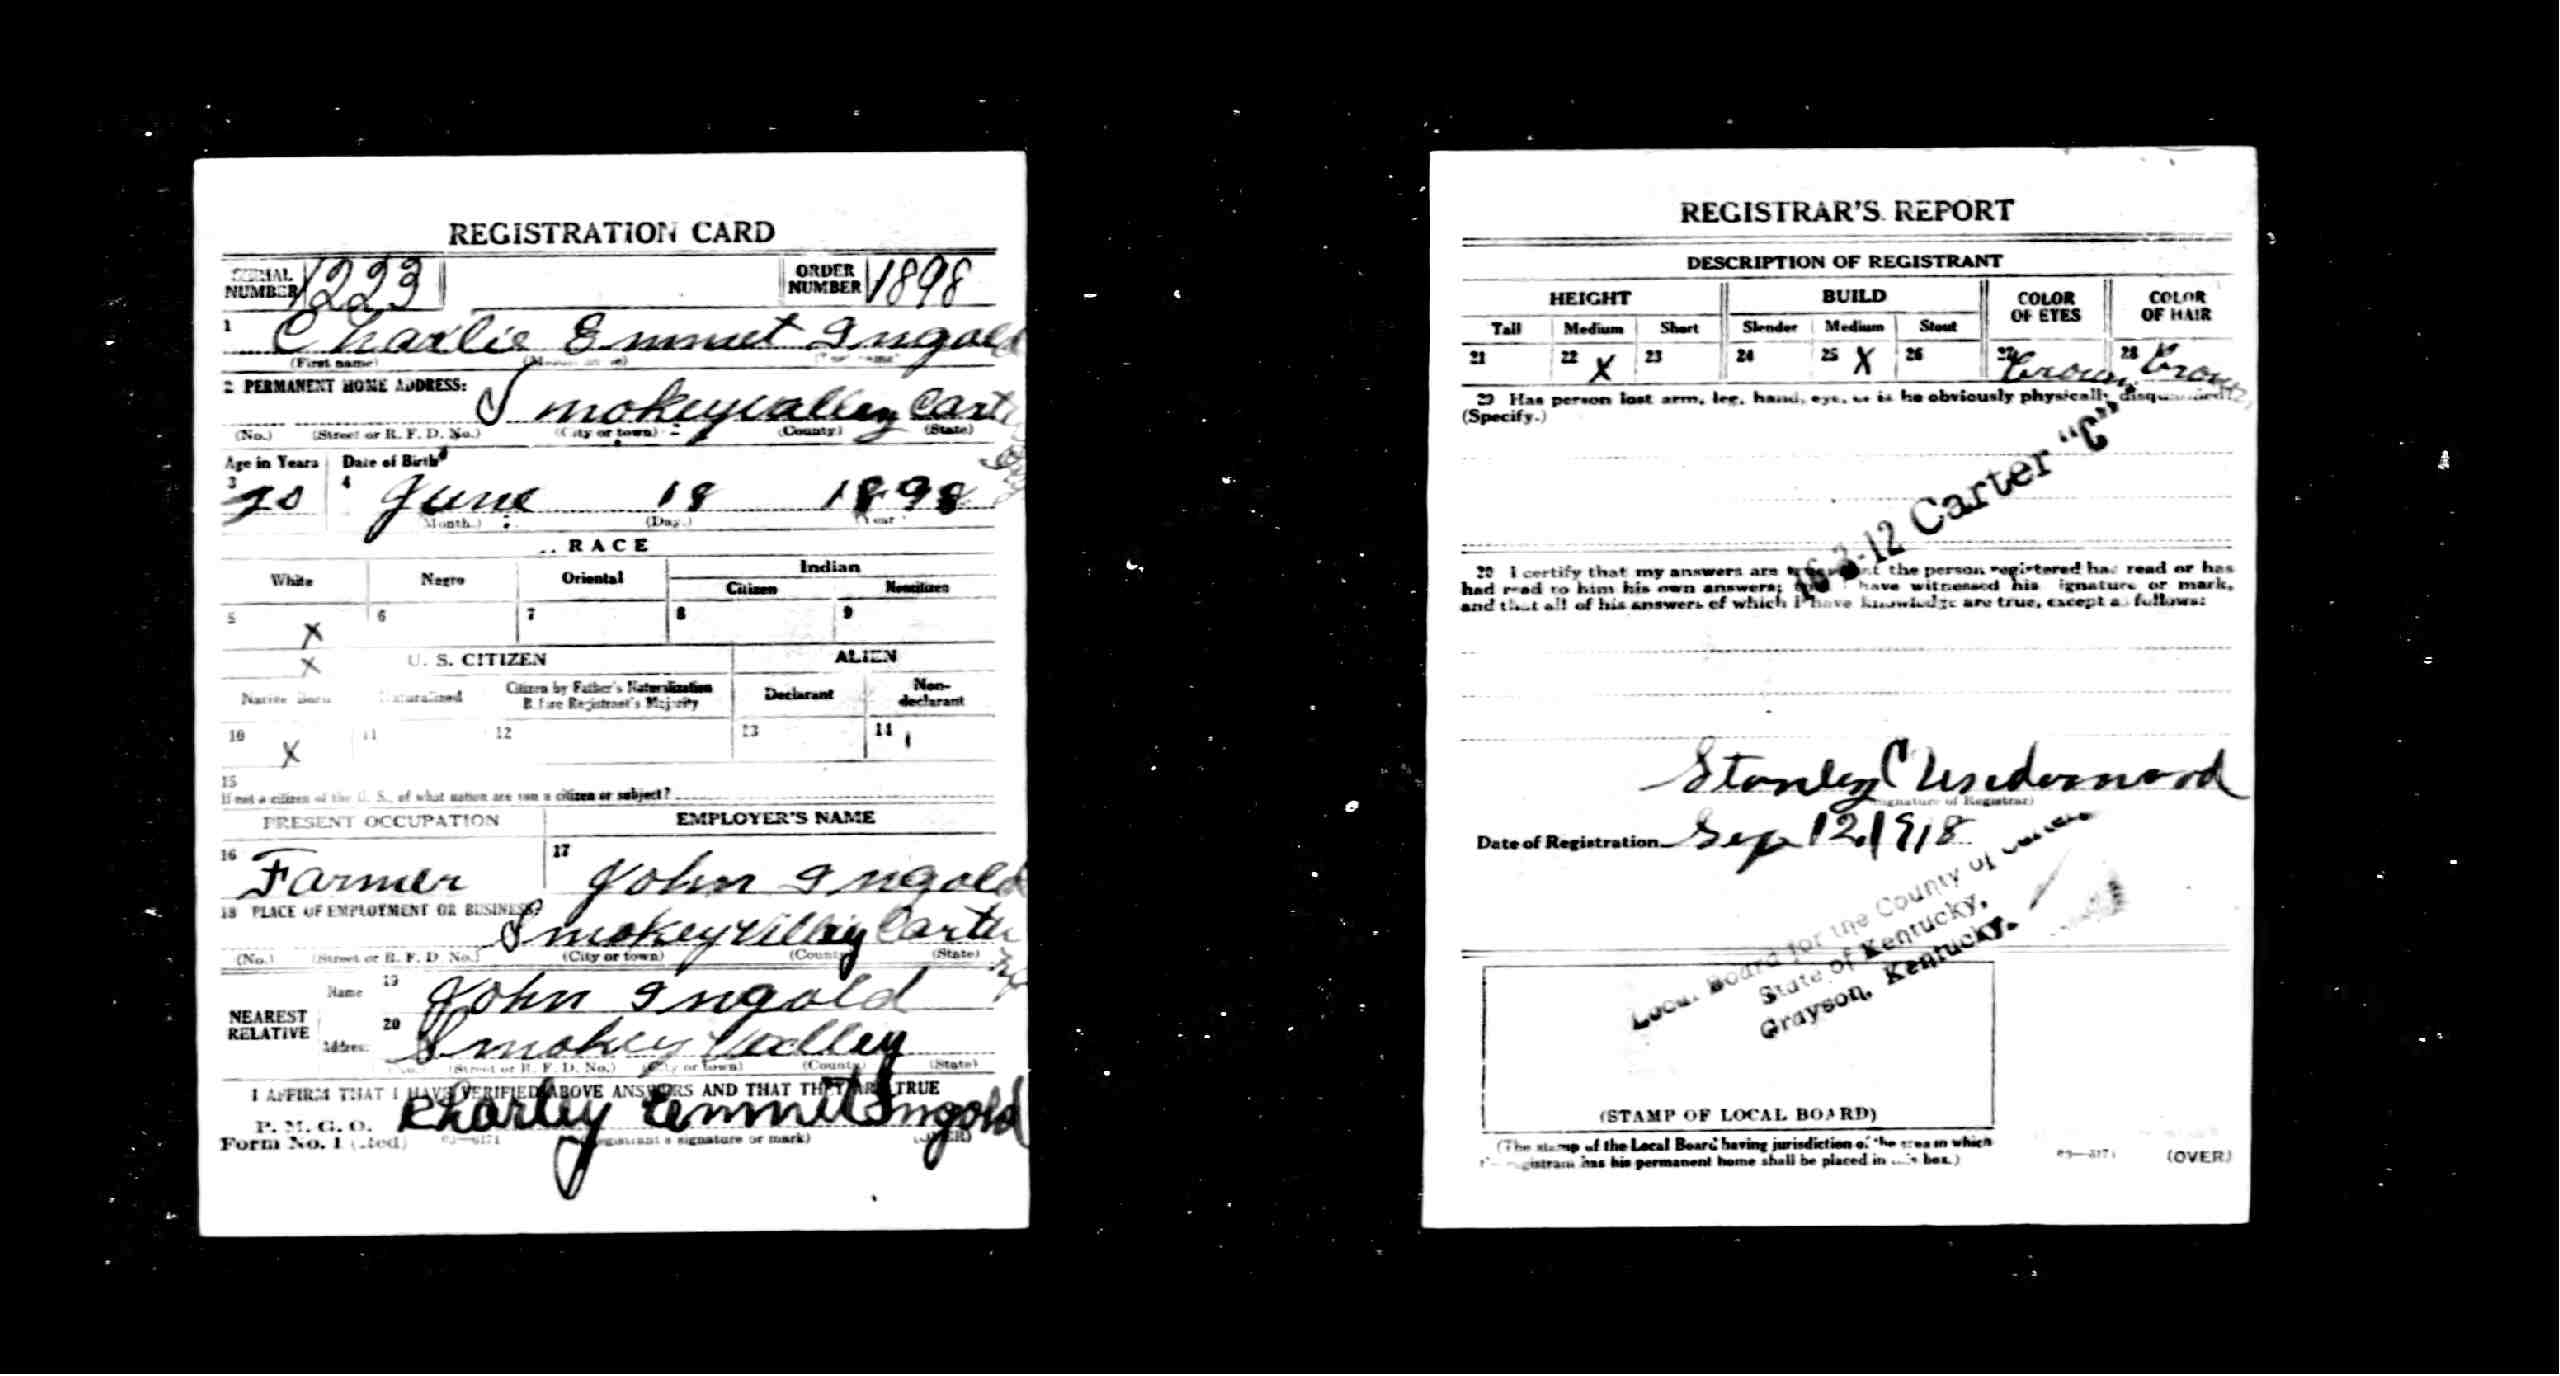 REGISTRATION CARD
SERIAL NUMBER 1223 ORDER NUMBER 1898
1 Charlie Emmet Ingold
(First name)
2 PERMANENT HOME ADDRESS:
Smokeyvalley Carter
(No.) (Street or R. F. D. No.) (City or town) (County) (State)
Age in Years Date of Birth
3 20 4 June 18 1898
(Month.) (Day.) (Year
RACE
White Negro Oriental Indian
Citizen Noncitizen
5 X 6 7 8 9
X U. S. CITIZEN ALIEN
Native Born Naturalized Citizen by Father's Naturalization Before Registrant's Majority Declarant Non-declarant
10 X 11 12 13 14
15
If not a citizen of the U. S., of what nation are you a citizen or subject?
PRESENT OCCUPATION EMPLOYER'S NAME
16 Farmer 17 John Ingold
18 PLACE OF EMPLOYMENT OR BUSINESS:
Smokeyvalley Carter
(No.) (Street or R. F. D. No.) (City or town) (County) (State)
NEAREST RELATIVE
Name 19 John Ingold
Address 20 Smokey Valley
(No.) (Street or R. F. D. No.) (City or town) (County) (State)
I AFFIRM THAT I HAVE VERIFIED ABOVE ANSWERS AND THAT THEY ARE TRUE
P. M. G. O.
Form No. 1 (Red) 03—6171 Charley Emmit Ingold
(Registrant's signature or mark) (OVER)
REGISTRAR'S REPORT
DESCRIPTION OF REGISTRANT
HEIGHT BUILD COLOR OF EYES COLOR OF HAIR
Tall Medium Short Slender Medium Stout
21 22 X 23 24 25 X 26 27 Brown 28 Brown
29 Has person lost arm, leg, hand, eye, or is he obviously physically disqualified?
(Specify.)
16-3-12 Carter "C"
30 I certify that my answers are the person registered has read or has
had read to him his own answers; have witnessed his signature or mark,
and that all of his answers of which I have knowledge are true, except as follows:
Stanley C Underwood
(Signature of Registrar)
Date of Registration Sep 12, 1918
Local Board for the County of Carter,
State of Kentucky,
Grayson, Kentucky.
(STAMP OF LOCAL BOARD)
(The stamp of the Local Board having jurisdiction of the area in which
the registrant has his permanent home shall be placed in this box.)
03—6171 (OVER)